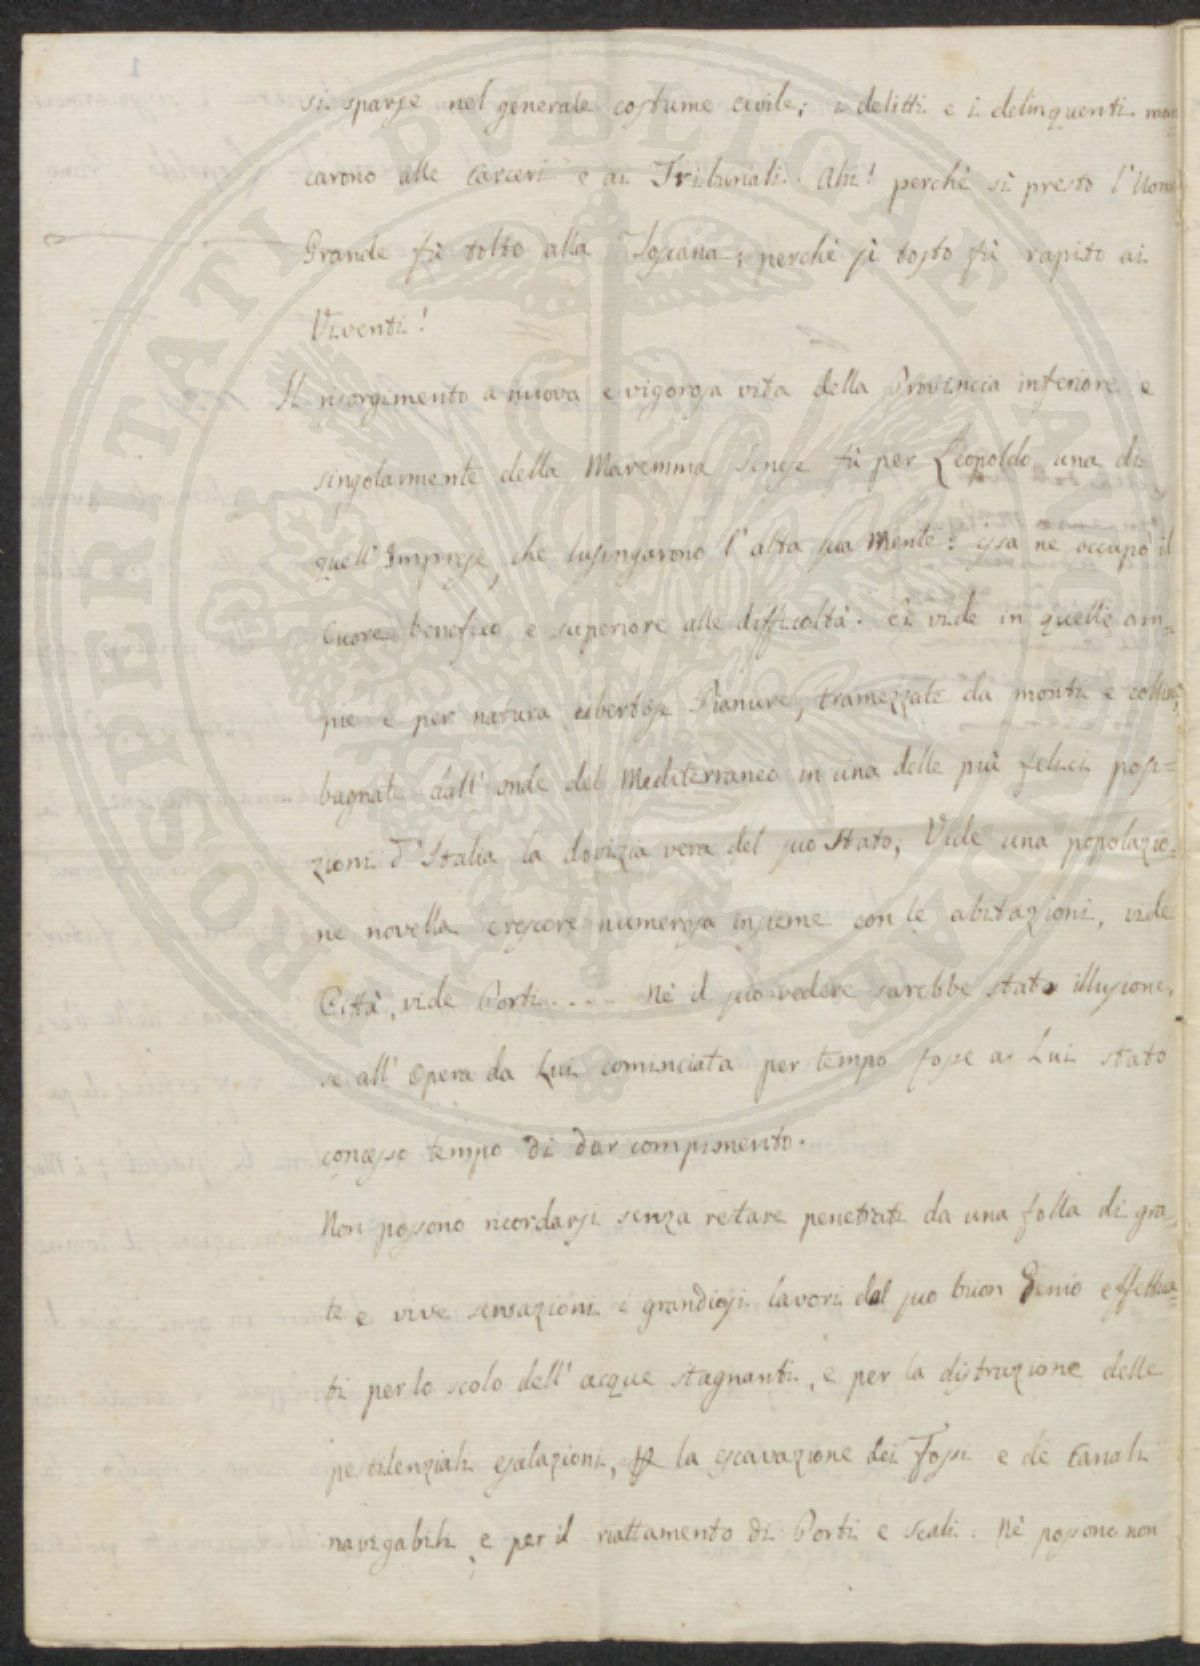 si sparse nel generale costume civile; i delitti e i delinquenti man
carono alle Carceri e ai Tribunali. Ahi! perchè sì presto l'Uomo
Grande fù tolto alla Toscana, perchè sì tosto fù rapito ai
Viventi!
Il risorgimento a nuova e vigorosa vita della Provincia inferiore e
singolarmente della Maremma Senese fù per Leopoldo una di
quell'Imprese, che lusingarono l'alta sua Mente: essa ne occupò il
Cuore benefico e superiore alle difficoltà. Ei vide in quelle am=
pie e per natura ubertose Pianure, tramezzate da monti e colline,
bagnate dall'onde del Mediterraneo in una delle più felici posi=
zioni d'Italia la dovizia vera del suo Stato; Vide una popolazio=
ne novella crescere numerosa insieme con le abitazioni, vide
Città, vide Porti..... Nè il suo vedere sarebbe stato illusione,
se all'Opera da Lui cominciata per tempo fosse a Lui stato
concesso tempo di dar compimento.
Non possono ricordarsi senza restare penetrati da una folla di gra=
te e vive sensazioni i grandiosi lavori dal suo buon Genio effettua=
ti per lo scolo dell'acque stagnanti, e per la distruzione delle
pestilenziali esalazioni, la escavazione dei Fossi e de Canali
navigabili, e per il riattamento di Porti e Scali. Nè possono non
PROSPERITATI PUBLICAE AUGENDAE
1